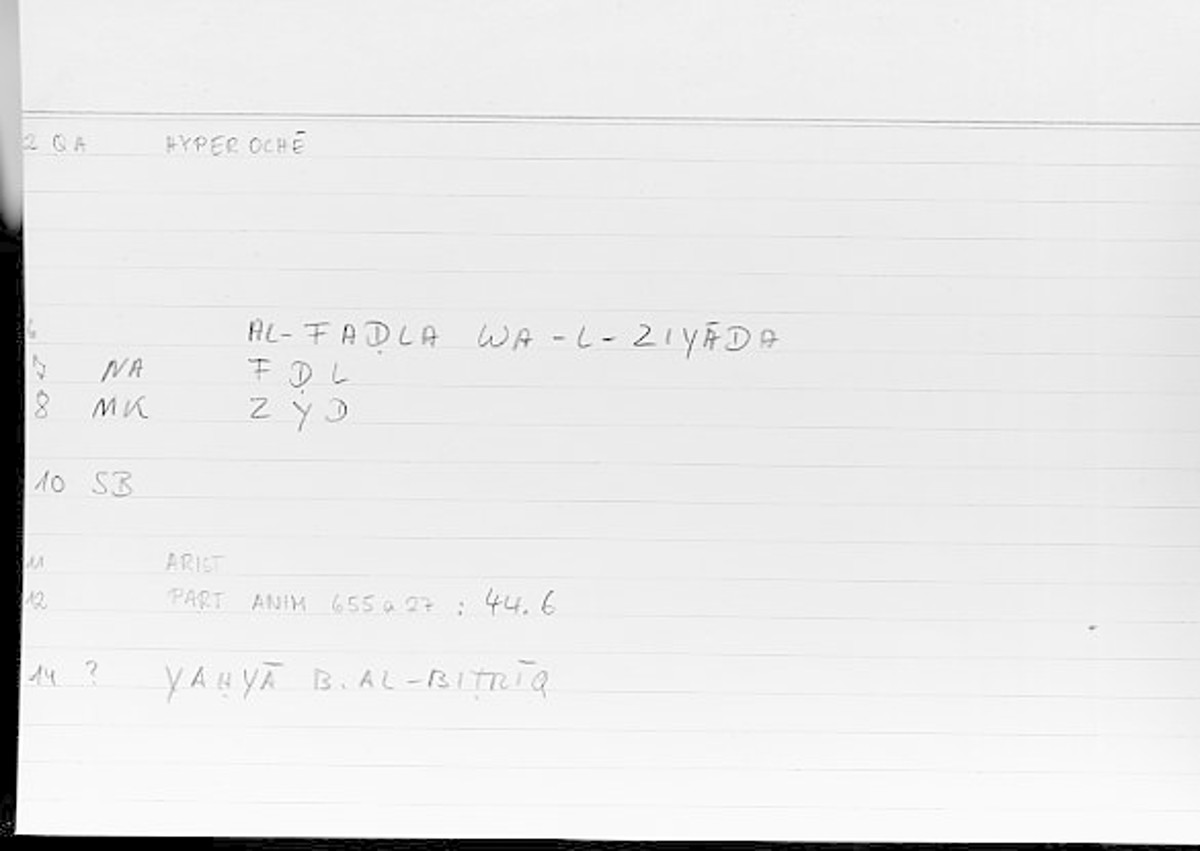 2 QA HYPEROCHĒ
6 AL-FAḌLA WA-L-ZIYĀDA
7 NA FḌL
8 MK ZYD
10 SB
11 ARIST
12 PART ANIM 655a27 : 44.6
14 ? YAḤYĀ B. AL-BIṬRĪQ